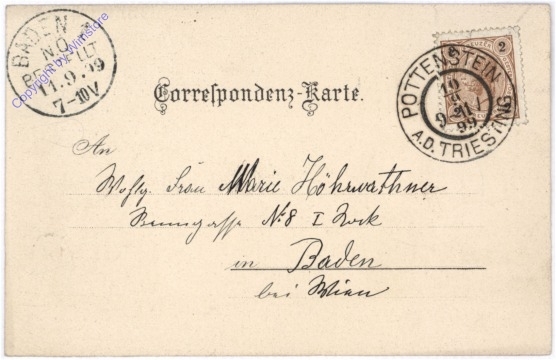 BADEN 1
N.Ö.
BESTELLT
11.9.99
7-10V
Copyright by Wimstore
2
POTTENSTEIN
10
9
99
A.D. TRIESTING
Correspondenz-Karte.
An
Wohlg. Frau Marie Höhrwarthner
Baumgasse No 8 I Stock
in Baden
bei Wien